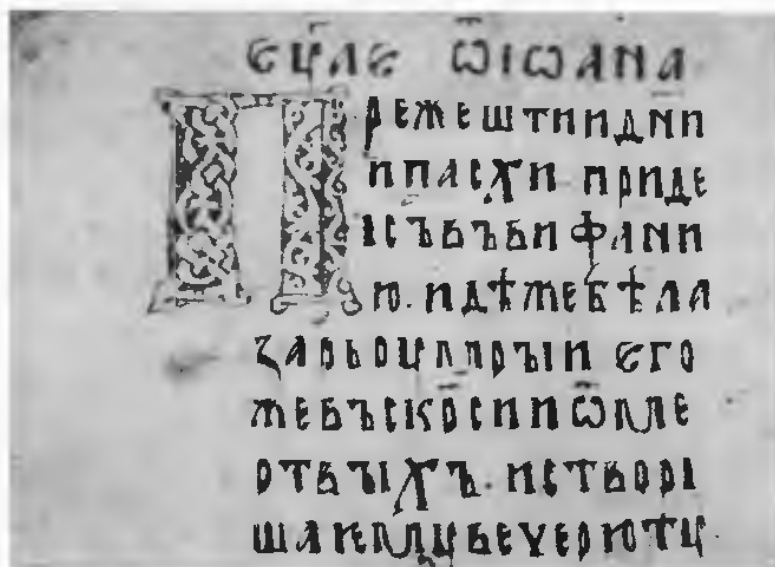 ЕѴ҃ЛЕ Ѿ ІѠАНА
ПРЕЖЕШТИИДНИ
ИПАСХИ ПРИДЕ
ІСЪВЪВИФАНИ
Ю. ИДѢЖЕБѢЛА
ЗАРЬОЦМРЪІИ ЕГО
ЖЕВЪСКР҃СИИѾМЕ
РТВЪІХЪ. ИСТВОРІ
ШАѤМЦВЕЧЕРЮТЦ